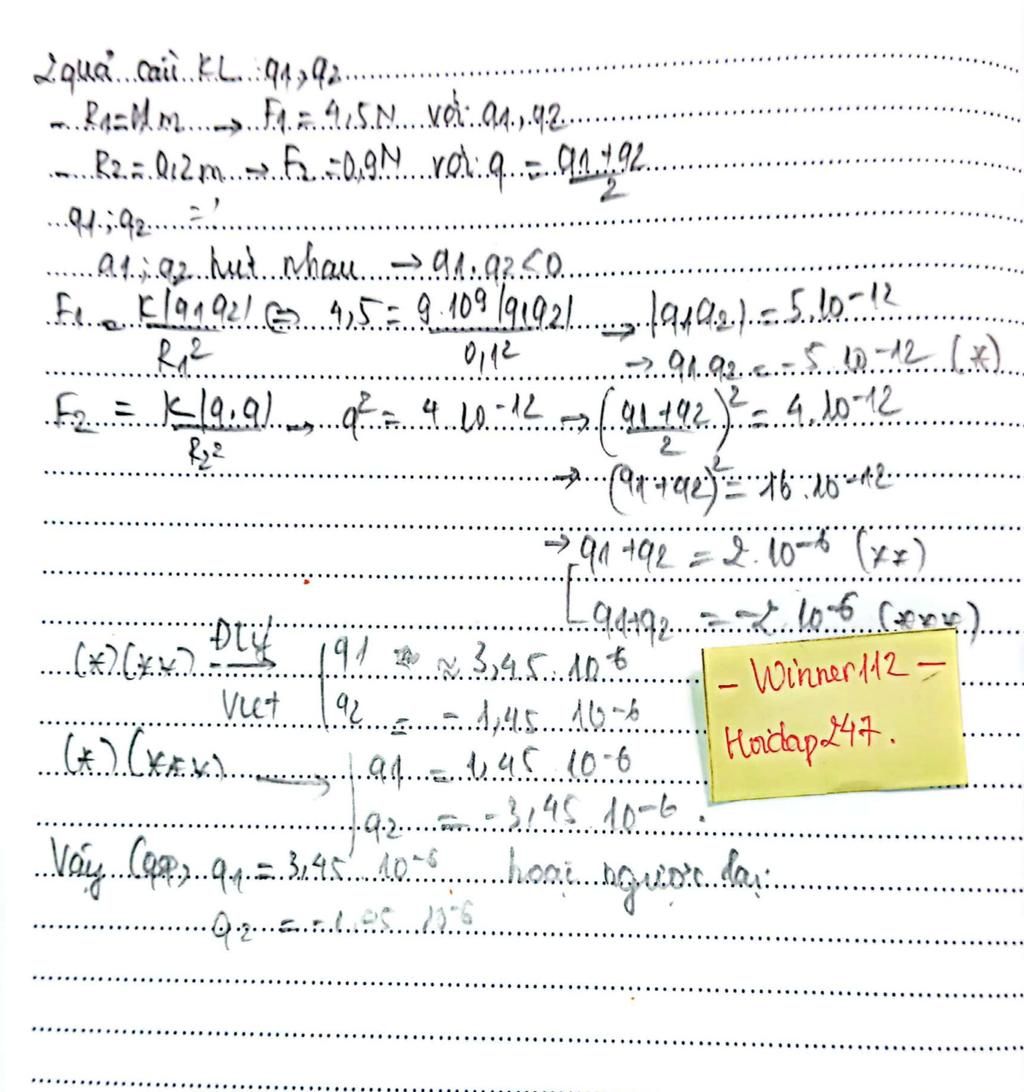 2 quả cầu KL: q1, q2
- R1 = 0,1m → F1 = 4,5N với q1, q2
- R2 = 0,2m → F2 = 0,9N với q = (q1 + q2)/2
q1; q2 = ?
q1; q2 hút nhau → q1.q2 < 0
F1 = K|q1q2|/R1² ⇔ 4,5 = 9.10⁹|q1q2|/0,1² → |q1q2| = 5.10⁻¹²
→ q1.q2 = -5.10⁻¹² (*)
F2 = K|q.q|/R2² → q² = 4.10⁻¹² → ((q1+q2)/2)² = 4.10⁻¹²
→ (q1+q2)² = 16.10⁻¹²
→ [ q1+q2 = 2.10⁻⁶ (**)
q1+q2 = -2.10⁻⁶ (***)
(*)(**) Đlý Viet → { q1 ≈ 3,45.10⁻⁶
q2 = -1,45.10⁻⁶
(*)(***) → { q1 = 1,45.10⁻⁶
q2 = -3,45.10⁻⁶.
Vậy q1 = 3,45.10⁻⁶ hoặc ngược lại
q2 = -1,45.10⁻⁶
- Winner112 -
Hoidap247.